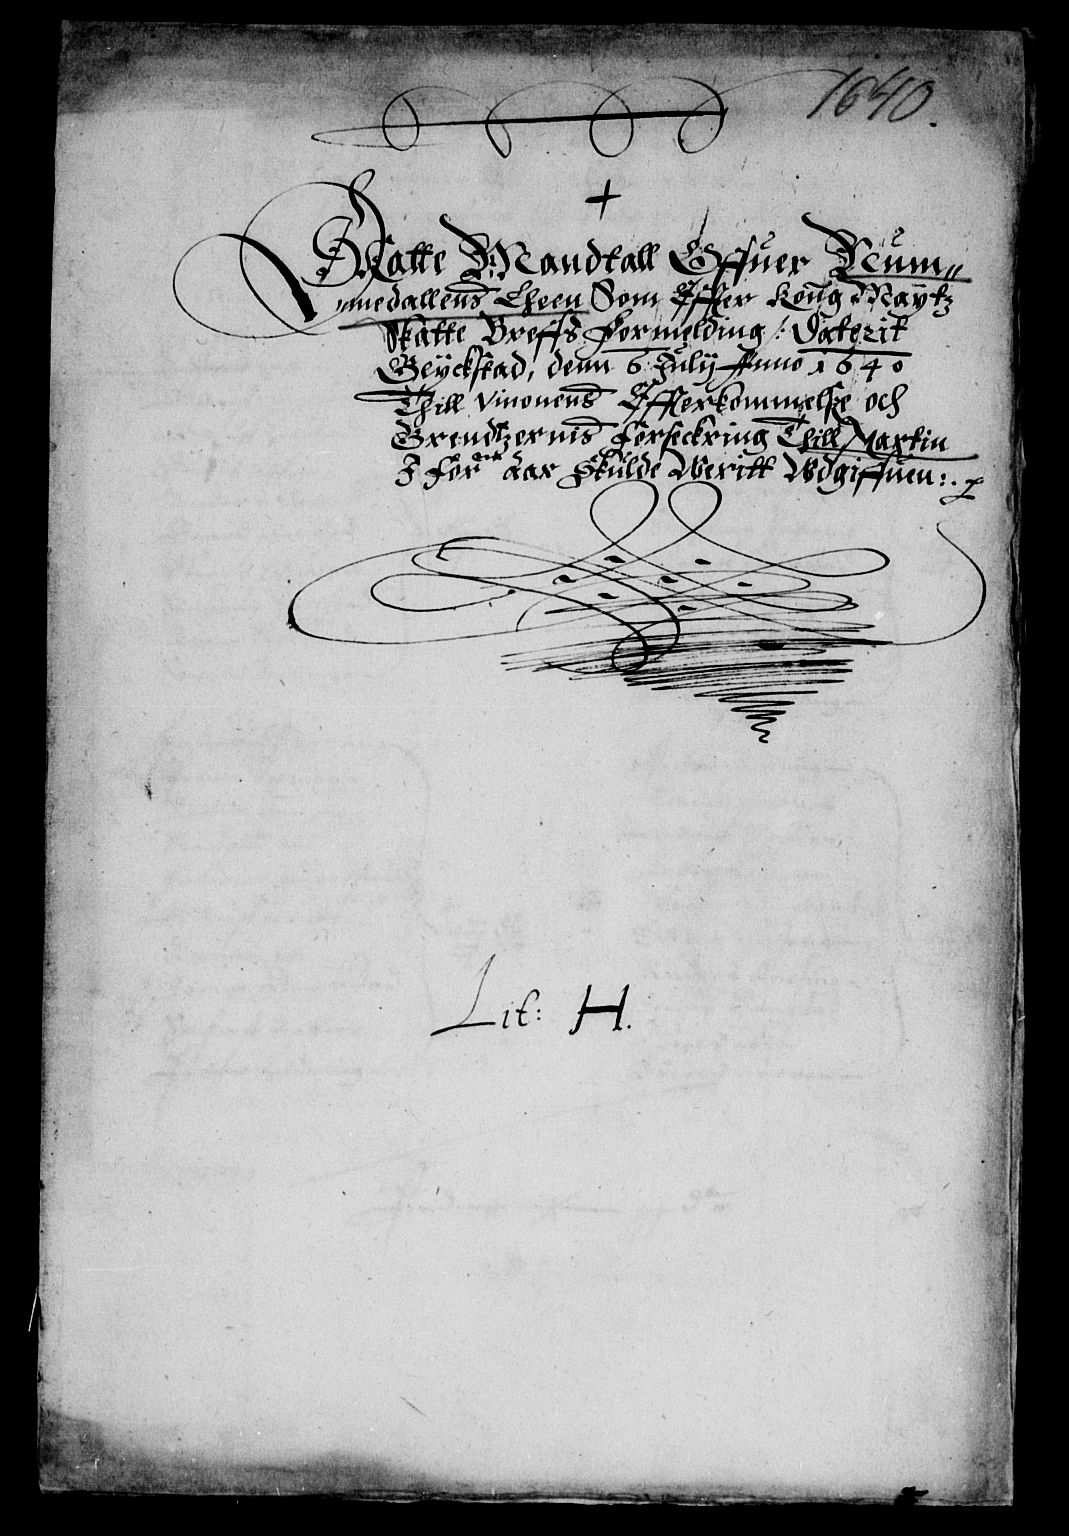 1640.
+
Skatte Mandtall Offuer Num„
„medallens Lheen Som Effter Kong Maÿtz
Skatte Breffs formelding /: Daterit
Glÿckstad, denn 6 Julij Anno 1640
Thill Unionens Effterkommelße och
Grendtzernis forseckring Thill Martin
I For.ne aar Skulde Weritt Wdgiffuen:.
Lit: H.